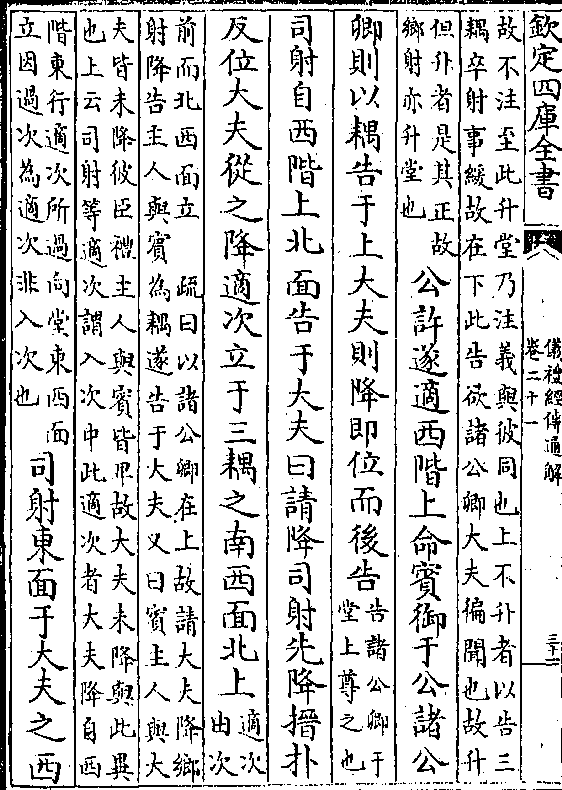 欽定四庫全書
儀禮經傳通解
卷二十一
三十二
故不注至此升堂乃注義與彼同也上不升者以告三
耦卒射事緩故在下此告欲諸公卿大夫徧聞也故升
但升者是其正故
鄉射亦升堂也
公許遂適西階上命賓御于公諸公
卿則以耦告于上大夫則降即位而後告
告諸公卿于
堂上尊之也
司射自西階上北面告于大夫曰請降司射先降搢扑
反位大夫從之降適次立于三耦之南西面北上
適次
由次
前而北西面立　疏曰以諸公卿在上故請大夫降鄉
射降告主人與賓為耦遂告于大夫又曰賓主人與大
夫皆未降彼臣禮主人與賓皆卑故大夫未降與此異
也上云司射等適次謂入次中此適次者大夫降自西
階東行適次所過向堂東西面
立因過次為適次非入次也
司射東面于大夫之西